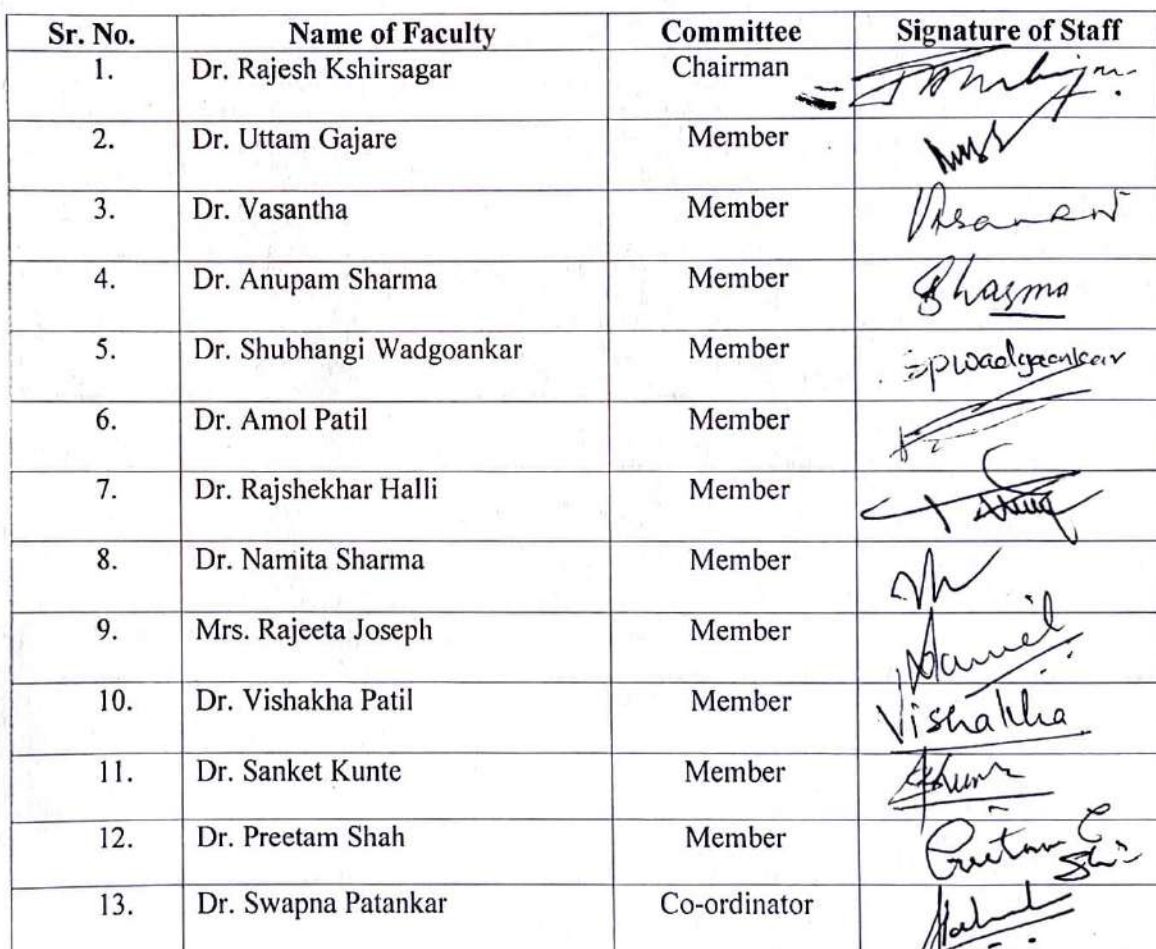 Sr. No. Name of Faculty Committee Signature of Staff
1. Dr. Rajesh Kshirsagar Chairman
2. Dr. Uttam Gajare Member
3. Dr. Vasantha Member
4. Dr. Anupam Sharma Member
5. Dr. Shubhangi Wadgoankar Member spwadgaonkar
6. Dr. Amol Patil Member
7. Dr. Rajshekhar Halli Member
8. Dr. Namita Sharma Member
9. Mrs. Rajeeta Joseph Member
10. Dr. Vishakha Patil Member Vishakha
11. Dr. Sanket Kunte Member
12. Dr. Preetam Shah Member
13. Dr. Swapna Patankar Co-ordinator